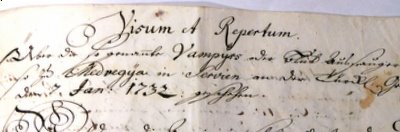 Visum et Repertum.
Über die so genannte Vampyrs oder Blut Aussauger
so zu Medvegya in Servien an der
den 7. Jan: 1732. geschehen.